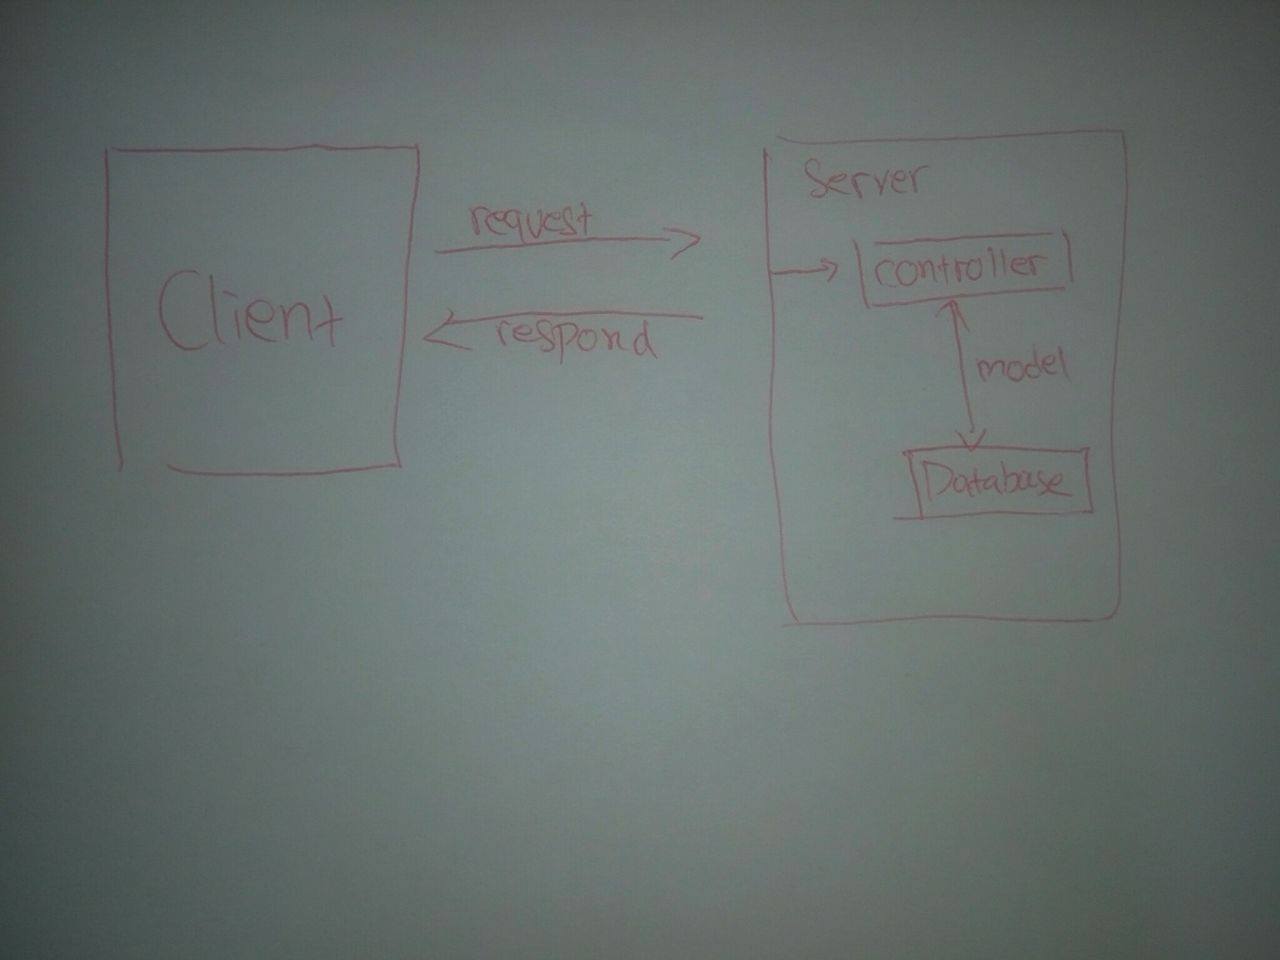 Client
request
respond
Server
controller
model
Database